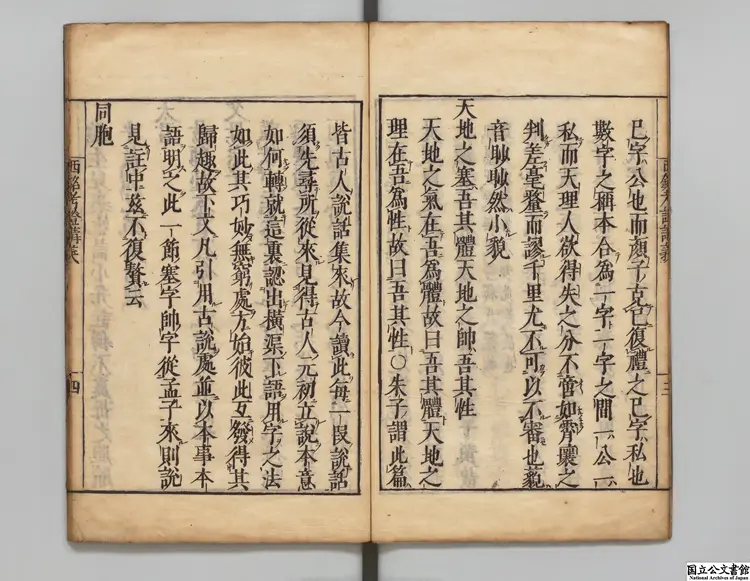 己字、公也、而顏子克己復禮之己字、私也
數字之稱、本合爲一字、一字之間、一公一
私、而天理人欲得失之分、不啻如霄壤之
判、差毫釐而謬千里、尤不可以不審也、藐
音眇、眇然小貌
天地之塞吾其體天地之帥吾其性
天地之氣、在吾爲體、故曰吾其體、天地之
理在吾爲性、故曰吾其性○朱子謂此篇
皆古人說話集來、故今讀此、每一段說話
須先尋所從來、見得古人元初立說本意
如何、轉就這裏認出橫渠下語用字之法
如此其巧妙無窮處、方始彼此互發得其
歸趣、故下文凡引用古說處、並以本事本
語明之、此一節塞字帥字、從孟子來、則說
見註中、茲不復贅云
同胞
西銘考證講義
三
西銘考證講義
四
国立公文書館
National Archives of Japan